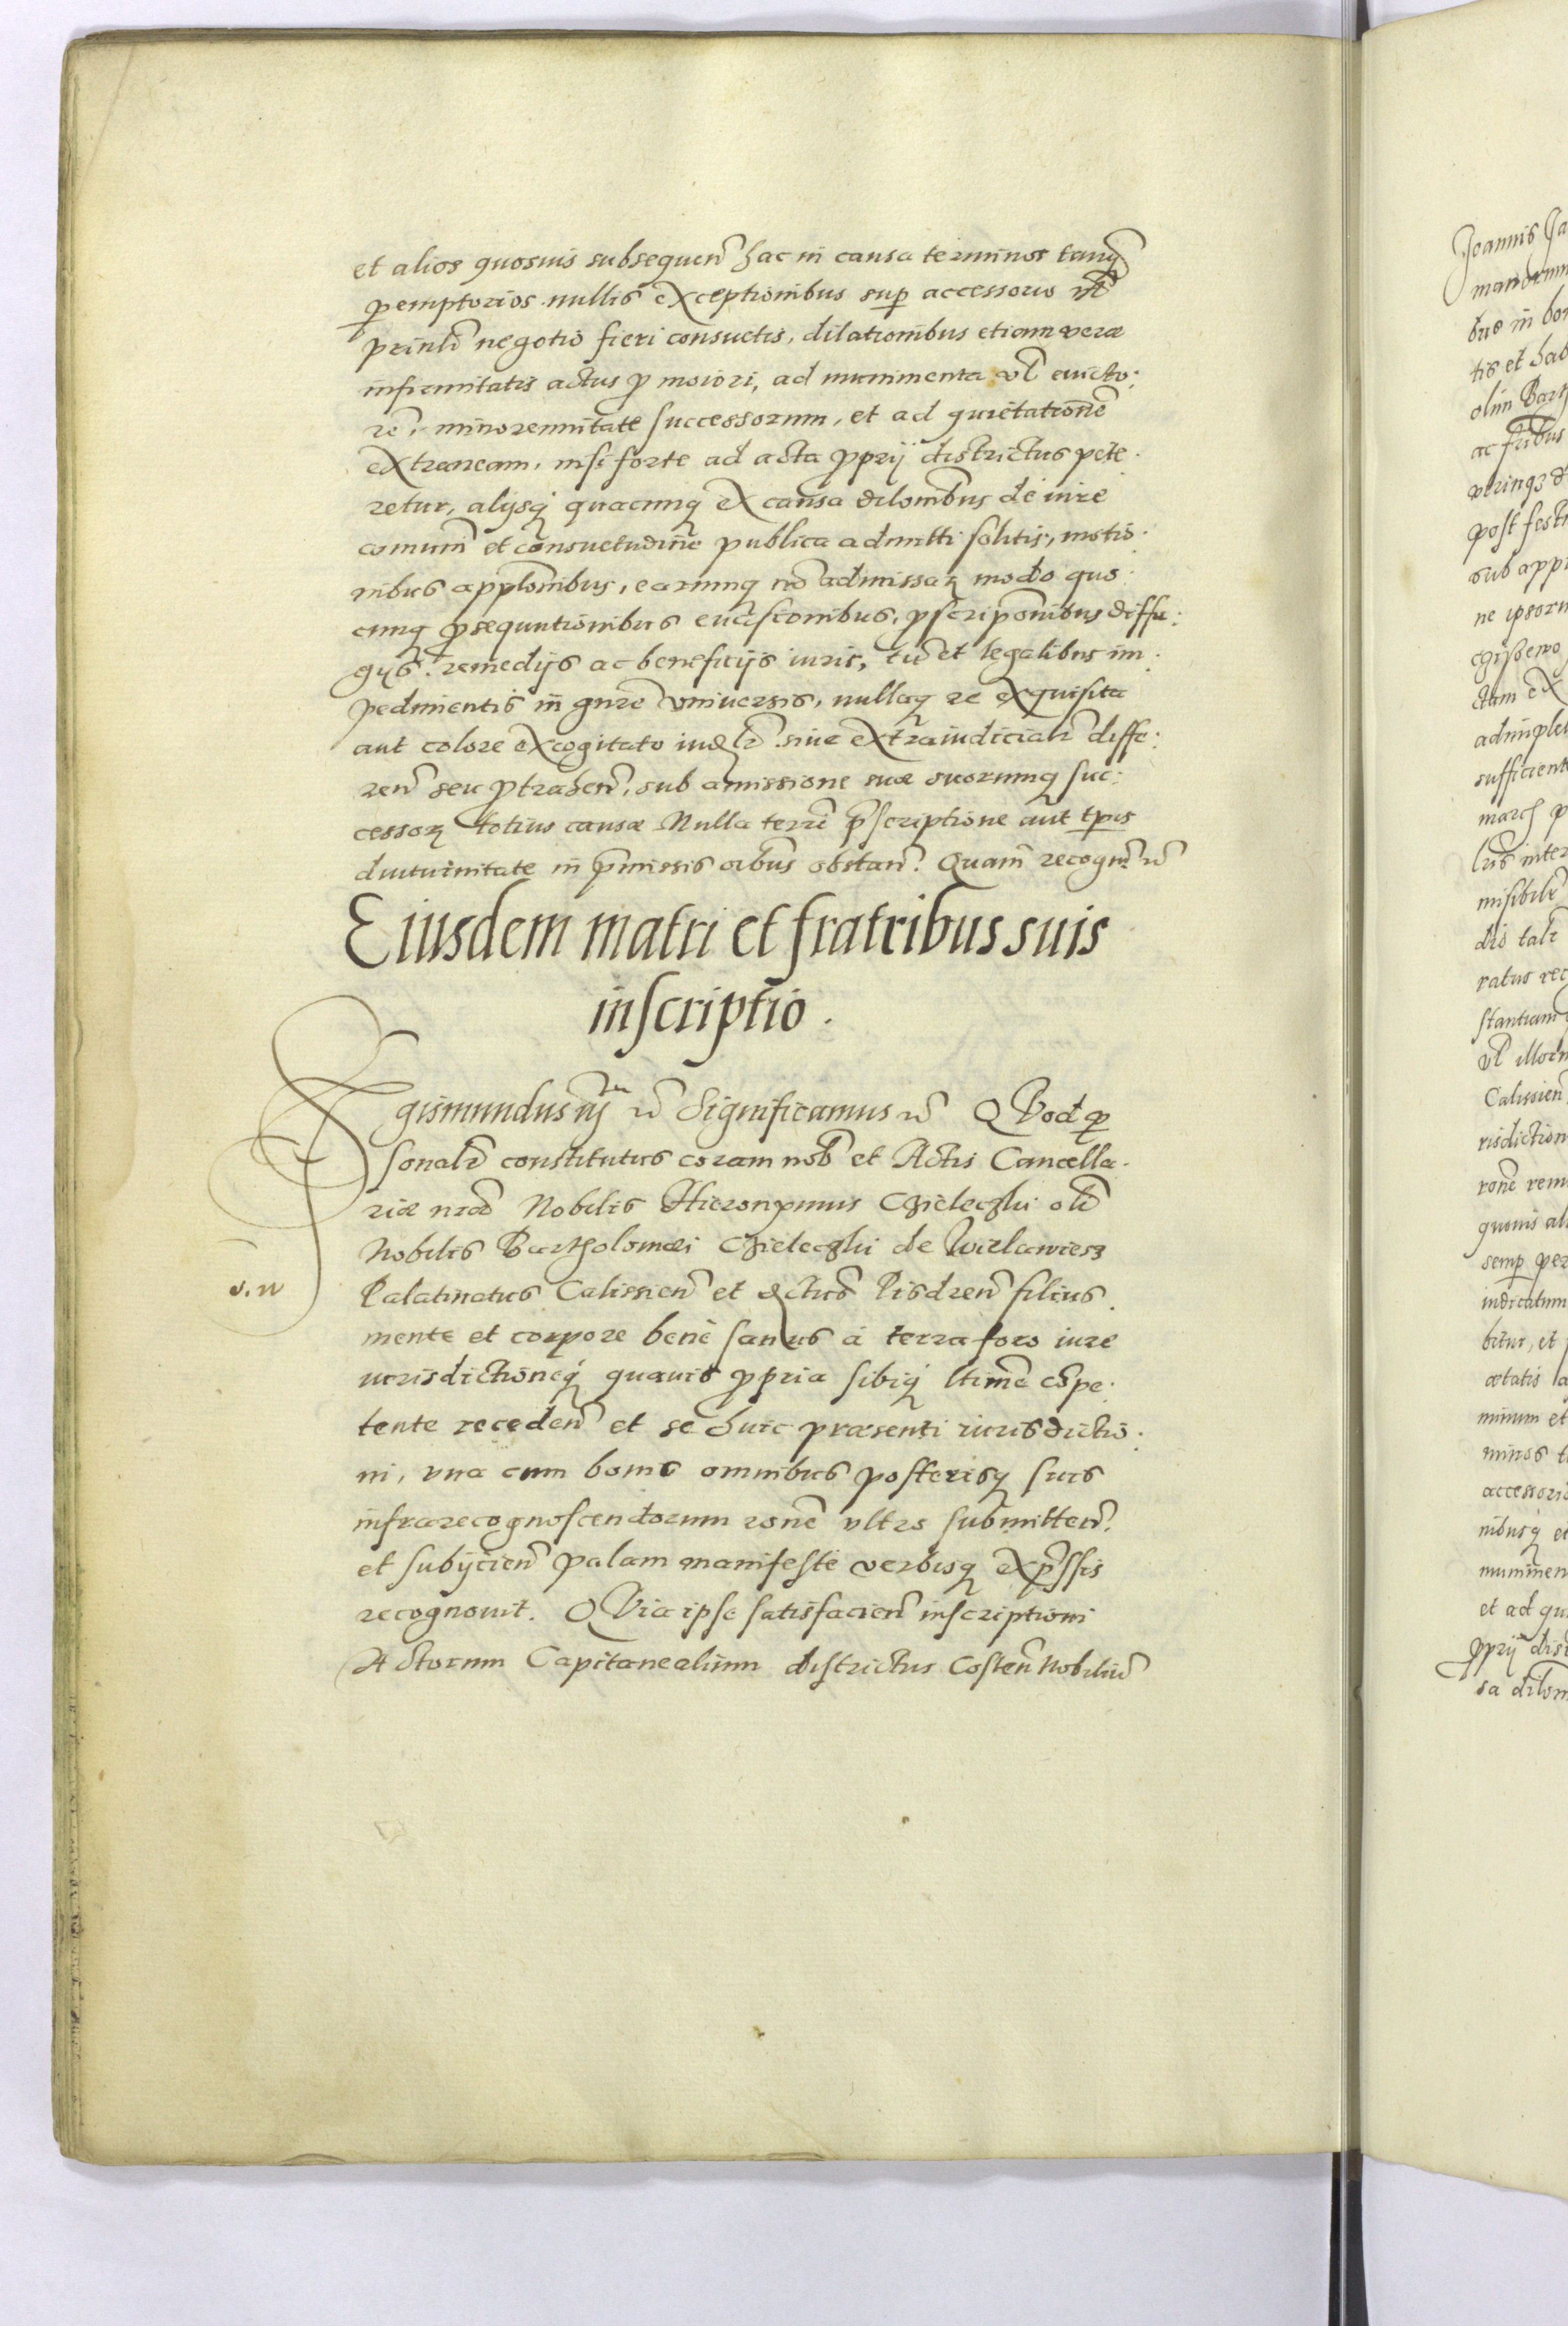 et alios quosvis subsequen̄ hac in causa terminos tanq̄
peremptorios nullis exceptionibus sup accessorio vl̄
prinli negotio fieri consuetis, dilationibus etiam veræ
infirmitatis actus p maiori, ad munimenta vl̄ evicto:
rē, minorennitate successorum, et ad quietationē
extraneam, nisi forte ad acta pprij districtus pete.
retur, alijsq quacunq ex causa dilōnibus de iure
comuni et consuetudine publica admitti solitis, motio.
nibus applōnibus, earumq nō admissaꝝ modo quo:
cunq psequutionibus evasionibus, pscripōnibus diffu:
gijs. remedijs ac beneficijs iuris, tū et legalibus im:
pedimentis in gnre vniversis, nullaq re exquisita
aut colore excogitato iudlr sive extraiudicialr diffe:
ren̄ seu ptrahen̄, sub amissione suæ suorumq suc:
cessoꝝ totius causæ Nulla terrē pscriptione aut tpis
diuturnitate in pmissis oibus obstan̄. Quam recogn̄ rc̄
Eiusdem matri et fratribus suis
inscriptio.
Sigismundus iij us rc̄ Significamus rc̄ QVod p
sonalr constitutus coram nob et Actis Cancella.
riæ nræ Nobilis Hieronymus Czieleczki olī
Nobilis Bartholomæi Czieleczki de Wielawiesz
v. w
Palatinatus Calissien̄ et dctus Pisdren̄ filius.
mente et corpore benè sanus à terra foro iure
iurisdictioneq quavis ppria sibiq ltime cōpe.
tente receden̄ et se huic præsenti iurisdictio:
ni, vna cum bonis omnibus posterisq suis
infrarecognoscendorum ronē vltro submitten̄.
et subijcien̄ palam manifestè verbisq expssis
recognovit. QVia ipse satisfacien̄ inscriptioni
Actorum Capitanealium districtus Costen̄ Nobiliū
Joannis
bus in
tis et
olim
ac fribus
post
sub
ne
ctam ex
march
inter
talr
Calissien̄
semp
bitur, et
ætatis
minum et
minos
nibusq et
et ad
pprij
sa